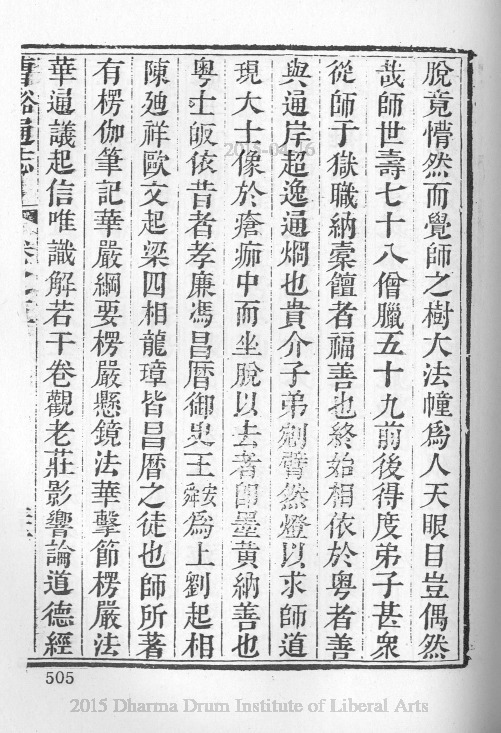 脫竟懵然而覺師之樹大法幢爲人天眼目豈偶然
哉師世壽七十八僧臘五十九前後得度弟子甚衆
從師于獄職納橐饘者福善也終始相依於粤者善
與通岸超逸通烱也貴介子弟剜臂然燈以求師道
現大士像於瘡痂中而坐脫以去者卽墨黃納善也
粤士皈依昔者孝廉馮昌曆御史王安舜爲上劉起相
陳廸祥歐文起梁四相龍璋皆昌曆之徒也師所著
有楞伽筆記華嚴綱要楞嚴懸鏡法華擊節楞嚴法
華通議起信唯識解若干卷觀老莊影響論道德經
曹谿通志
505
2015-04-16
2015 Dharma Drum Institute of Liberal Arts